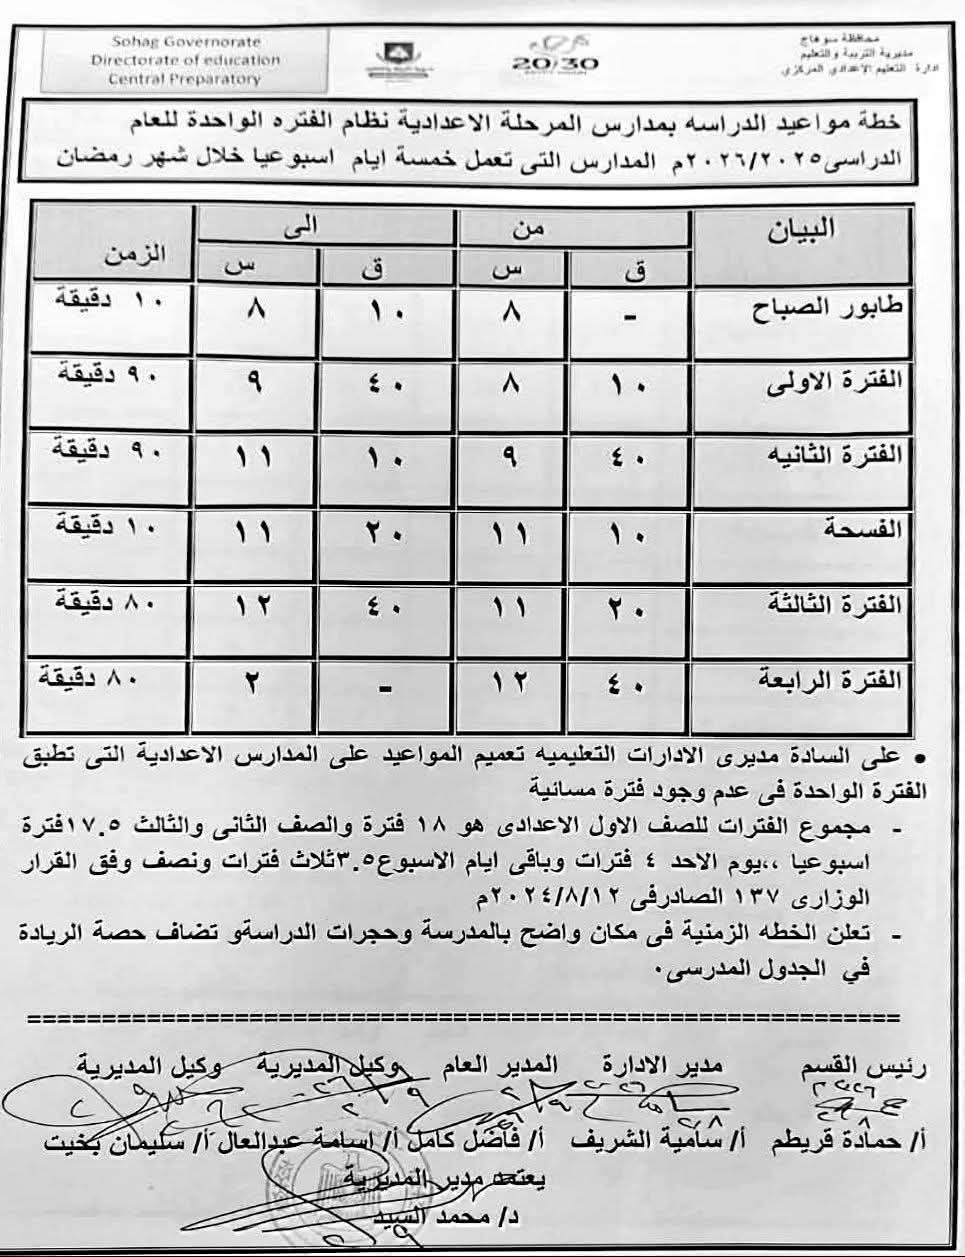 Sohag Governorate
Directorate of education
Central Preparatory
20/30
محافظة سوهاج
مديرية التربية والتعليم
ادارة التعليم الإعدادي المركزي
خطة مواعيد الدراسه بمدارس المرحلة الاعدادية نظام الفتره الواحدة للعام
الدراسى٢٠٢٦/٢٠٢٥م المدارس التى تعمل خمسة ايام اسبوعيا خلال شهر رمضان
البيان من الى الزمن
ق س ق س
طابور الصباح - ٨ ١٠ ٨ ١٠ دقيقة
الفترة الاولى ١٠ ٨ ٤٠ ٩ ٩٠ دقيقة
الفترة الثانيه ٤٠ ٩ ١٠ ١١ ٩٠ دقيقة
الفسحة ١٠ ١١ ٢٠ ١١ ١٠ دقيقة
الفترة الثالثة ٢٠ ١١ ٤٠ ١٢ ٨٠ دقيقة
الفترة الرابعة ٤٠ ١٢ - ٢ ٨٠ دقيقة
• على السادة مديرى الادارات التعليميه تعميم المواعيد على المدارس الاعدادية التى تطبق
الفترة الواحدة فى عدم وجود فترة مسائية
- مجموع الفترات للصف الاول الاعدادى هو ١٨ فترة والصف الثانى والثالث ١٧.٥فترة
اسبوعيا ،،يوم الاحد ٤ فترات وباقى ايام الاسبوع٣.٥ثلاث فترات ونصف وفق القرار
الوزارى ١٣٧ الصادرفى ٢٠٢٤/٨/١٢م
- تعلن الخطه الزمنية فى مكان واضح بالمدرسة وحجرات الدراسةو تضاف حصة الريادة
في الجدول المدرسى.
====================================
رئيس القسم مدير الادارة المدير العام وكيل المديرية وكيل المديرية
أ/ حمادة قريطم أ/ سامية الشريف أ/ فاضل كامل أ/ اسامة عبدالعال أ/ سليمان بخيت
يعتمد مدير المديرية
د/ محمد السيد